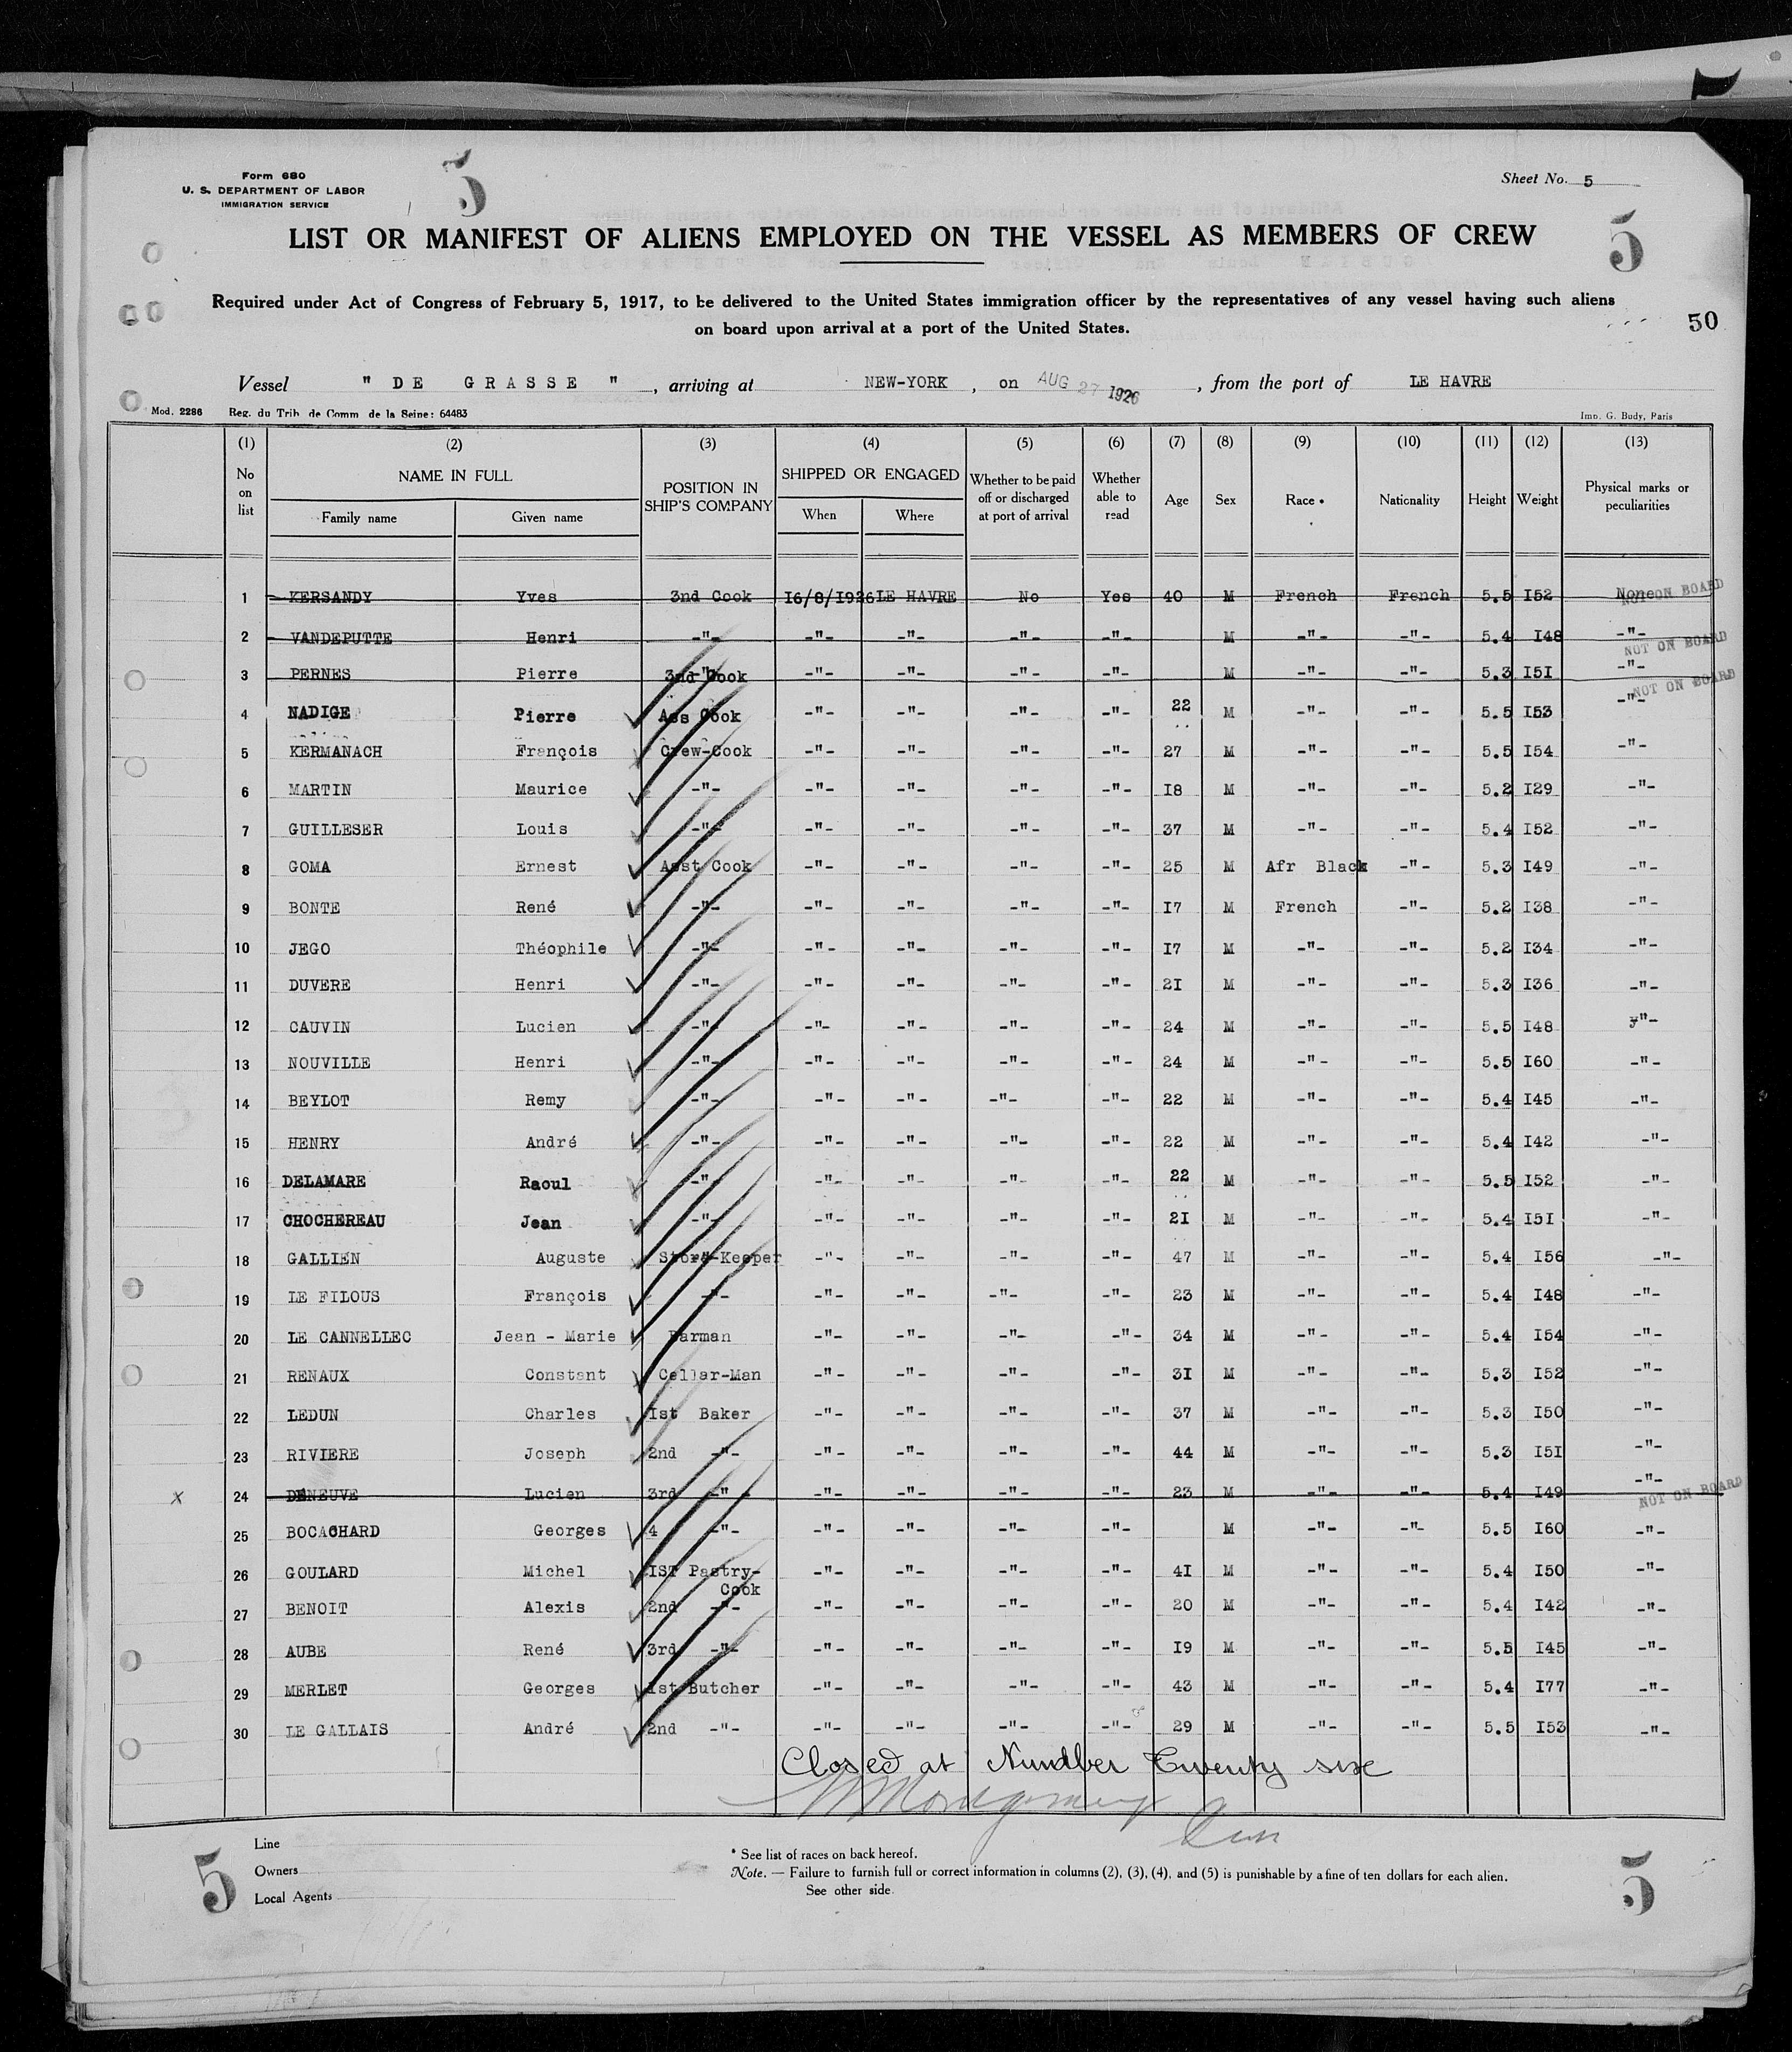 Form 680
U. S. DEPARTMENT OF LABOR
IMMIGRATION SERVICE
5
Sheet No. 5
LIST OR MANIFEST OF ALIENS EMPLOYED ON THE VESSEL AS MEMBERS OF CREW
5
Required under Act of Congress of February 5, 1917, to be delivered to the United States immigration officer by the representatives of any vessel having such aliens
on board upon arrival at a port of the United States.
50
Vessel " DE GRASSE " , arriving at NEW-YORK , on AUG 27 1926 , from the port of LE HAVRE
Mod. 2286 Reg. du Trib. de Comm. de la Seine: 64483 Imp. G. Budy, Paris
(1) (2) (3) (4) (5) (6) (7) (8) (9) (10) (11) (12) (13)
No on list NAME IN FULL Family name Given name POSITION IN SHIP'S COMPANY SHIPPED OR ENGAGED When Where Whether to be paid off or discharged at port of arrival Whether able to read Age Sex Race * Nationality Height Weight Physical marks or peculiarities
1 KERSANDY Yves 3nd Cook I6/8/I926 LE HAVRE No Yes 40 M French French 5.5 I52 None NOT ON BOARD
2 VANDEPUTTE Henri -"- -"- -"- -"- -"- M -"- -"- 5.4 I48 -"- NOT ON BOARD
3 PERNES Pierre 3nd Cook -"- -"- -"- -"- M -"- -"- 5.3 I5I -"- NOT ON BOARD
4 NADIGE Pierre Ass Cook -"- -"- -"- -"- 22 M -"- -"- 5.5 I53 -"-
5 KERMANACH François Crew-Cook -"- -"- -"- -"- 27 M -"- -"- 5.5 I54 -"-
6 MARTIN Maurice -"- -"- -"- -"- -"- I8 M -"- -"- 5.2 I29 -"-
7 GUILLESER Louis -"- -"- -"- -"- -"- 37 M -"- -"- 5.4 I52 -"-
8 GOMA Ernest Asst Cook -"- -"- -"- -"- 25 M Afr Black -"- 5.3 I49 -"-
9 BONTE René -"- -"- -"- -"- -"- I7 M French -"- 5.2 I38 -"-
10 JEGO Théophile -"- -"- -"- -"- -"- I7 M -"- -"- 5.2 I34 -"-
11 DUVERE Henri -"- -"- -"- -"- -"- 2I M -"- -"- 5.3 I36 -"-
12 CAUVIN Lucien -"- -"- -"- -"- -"- 24 M -"- -"- 5.5 I48 y"-
13 NOUVILLE Henri -"- -"- -"- -"- -"- 24 M -"- -"- 5.5 I60 -"-
14 BEYLOT Remy -"- -"- -"- -"- -"- 22 M -"- -"- 5.4 I45 -"-
15 HENRY André -"- -"- -"- -"- -"- 22 M -"- -"- 5.4 I42 -"-
16 DELAMARE Raoul -"- -"- -"- -"- -"- 22 M -"- -"- 5.5 I52 -"-
17 CHOCHEREAU Jean -"- -"- -"- -"- -"- 2I M -"- -"- 5.4 I5I -"-
18 GALLIEN Auguste Store-Keeper -"- -"- -"- -"- 47 M -"- -"- 5.4 I56 -"-
19 LE FILOUS François -"- -"- -"- -"- -"- 23 M -"- -"- 5.4 I48 -"-
20 LE CANNELLEC Jean - Marie Barman -"- -"- -"- -"- 34 M -"- -"- 5.4 I54 -"-
21 RENAUX Constant Cellar-Man -"- -"- -"- -"- 3I M -"- -"- 5.3 I52 -"-
22 LEDUN Charles Ist Baker -"- -"- -"- -"- 37 M -"- -"- 5.3 I50 -"-
23 RIVIERE Joseph 2nd -"- -"- -"- -"- -"- 44 M -"- -"- 5.3 I5I -"-
x 24 DENEUVE Lucien 3rd -"- -"- -"- -"- -"- 23 M -"- -"- 5.4 I49 -"- NOT ON BOARD
25 BOCACHARD Georges 4 -"- -"- -"- -"- -"- M -"- -"- 5.5 I60 -"-
26 GOULARD Michel IST Pastry-Cook -"- -"- -"- -"- 4I M -"- -"- 5.4 I50 -"-
27 BENOIT Alexis 2nd -"- -"- -"- -"- -"- 20 M -"- -"- 5.4 I42 -"-
28 AUBE René 3rd -"- -"- -"- -"- -"- I9 M -"- -"- 5.5 I45 -"-
29 MERLET Georges Ist Butcher -"- -"- -"- -"- 43 M -"- -"- 5.4 I77 -"-
30 LE GALLAIS André 2nd -"- -"- -"- -"- -"- 29 M -"- -"- 5.5 I53 -"-
Closed at Number Twenty six
Montgomery
5
Line
Owners
Local Agents
* See list of races on back hereof.
Note. — Failure to furnish full or correct information in columns (2), (3), (4), and (5) is punishable by a fine of ten dollars for each alien.
See other side.
5